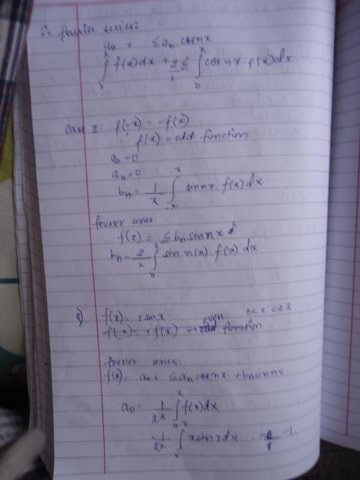 fourier series:
a₀ + Σaₙ cosnx
∫ f(x)dx + 2Σ/π ∫ cosnx f(x)dx
Case 2: f(-x) = -f(x)
f(x) = odd function
a₀ = 0
aₙ = 0
bₙ = 1/π ∫ sinnx. f(x) dx
fourier
f(x) = Σ bₙ sin nx
bₙ = 2/π ∫ sin n(x). f(x) dx
f(x) = x sinx 0<x<2π
f(-x) = +f(x) → even function
fourier
f(x) = a₀ + Σaₙ cosnx + bₙ sinnx
a₀ = 1/2π ∫ f(x)dx
= 1/2π ∫ xsinx dx = -1